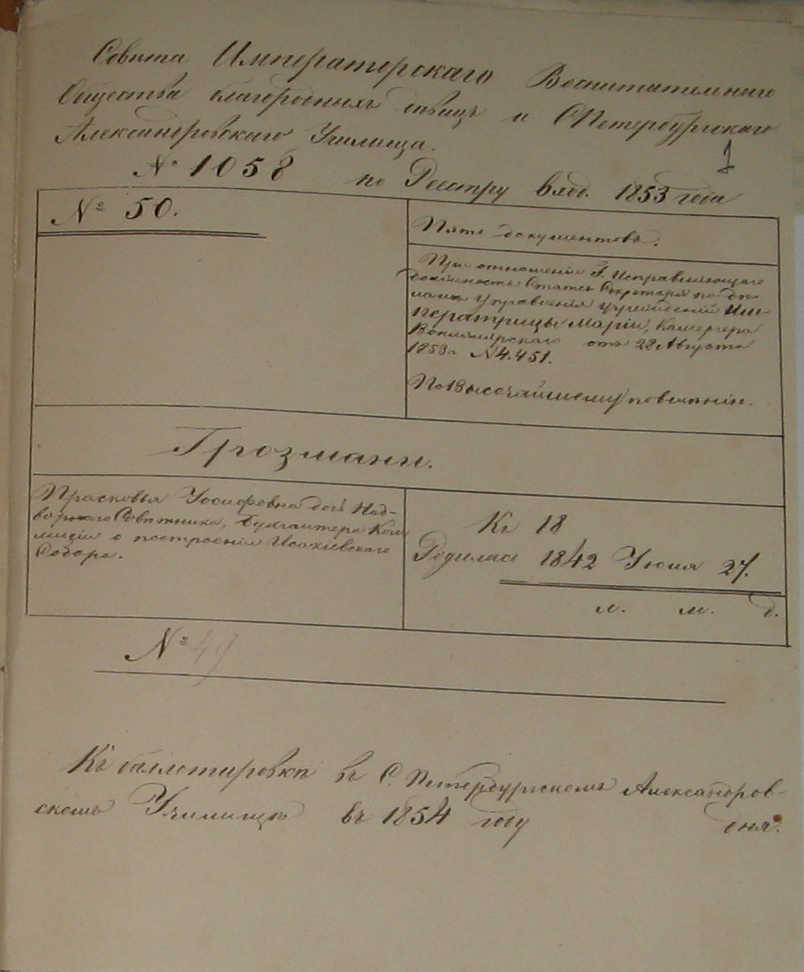 Совѣта Императорскаго Воспитательнаго
Общества благородныхъ дѣвицъ и С.Петербургскаго
Александровскаго Училища.
1
№ 1058 по Реестру вход. 1853 года
№ 50.
Пять документовъ.
При отношеніи Г. Исправляющаго
должность Статсъ Секретаря по дѣ-
ламъ Управленія учрежденій Им-
ператрицы Маріи, Камергера
отъ 28 Августа
1853 г. № 4.451.
По Высочайшему повелѣнію.
Грозманн.
Прасковья Іосифовна дочь Над-
ворнаго Совѣтника, Бухгалтера Ком-
мисіи о построеніи Исакіевскаго
Собора.
К 18
Родилась 1842 Іюня 27.
л. м. д.
№ 49
Къ баллотировкѣ въ С. Петербургскомъ Александров-
скомъ Училищѣ въ 1854 году дня.